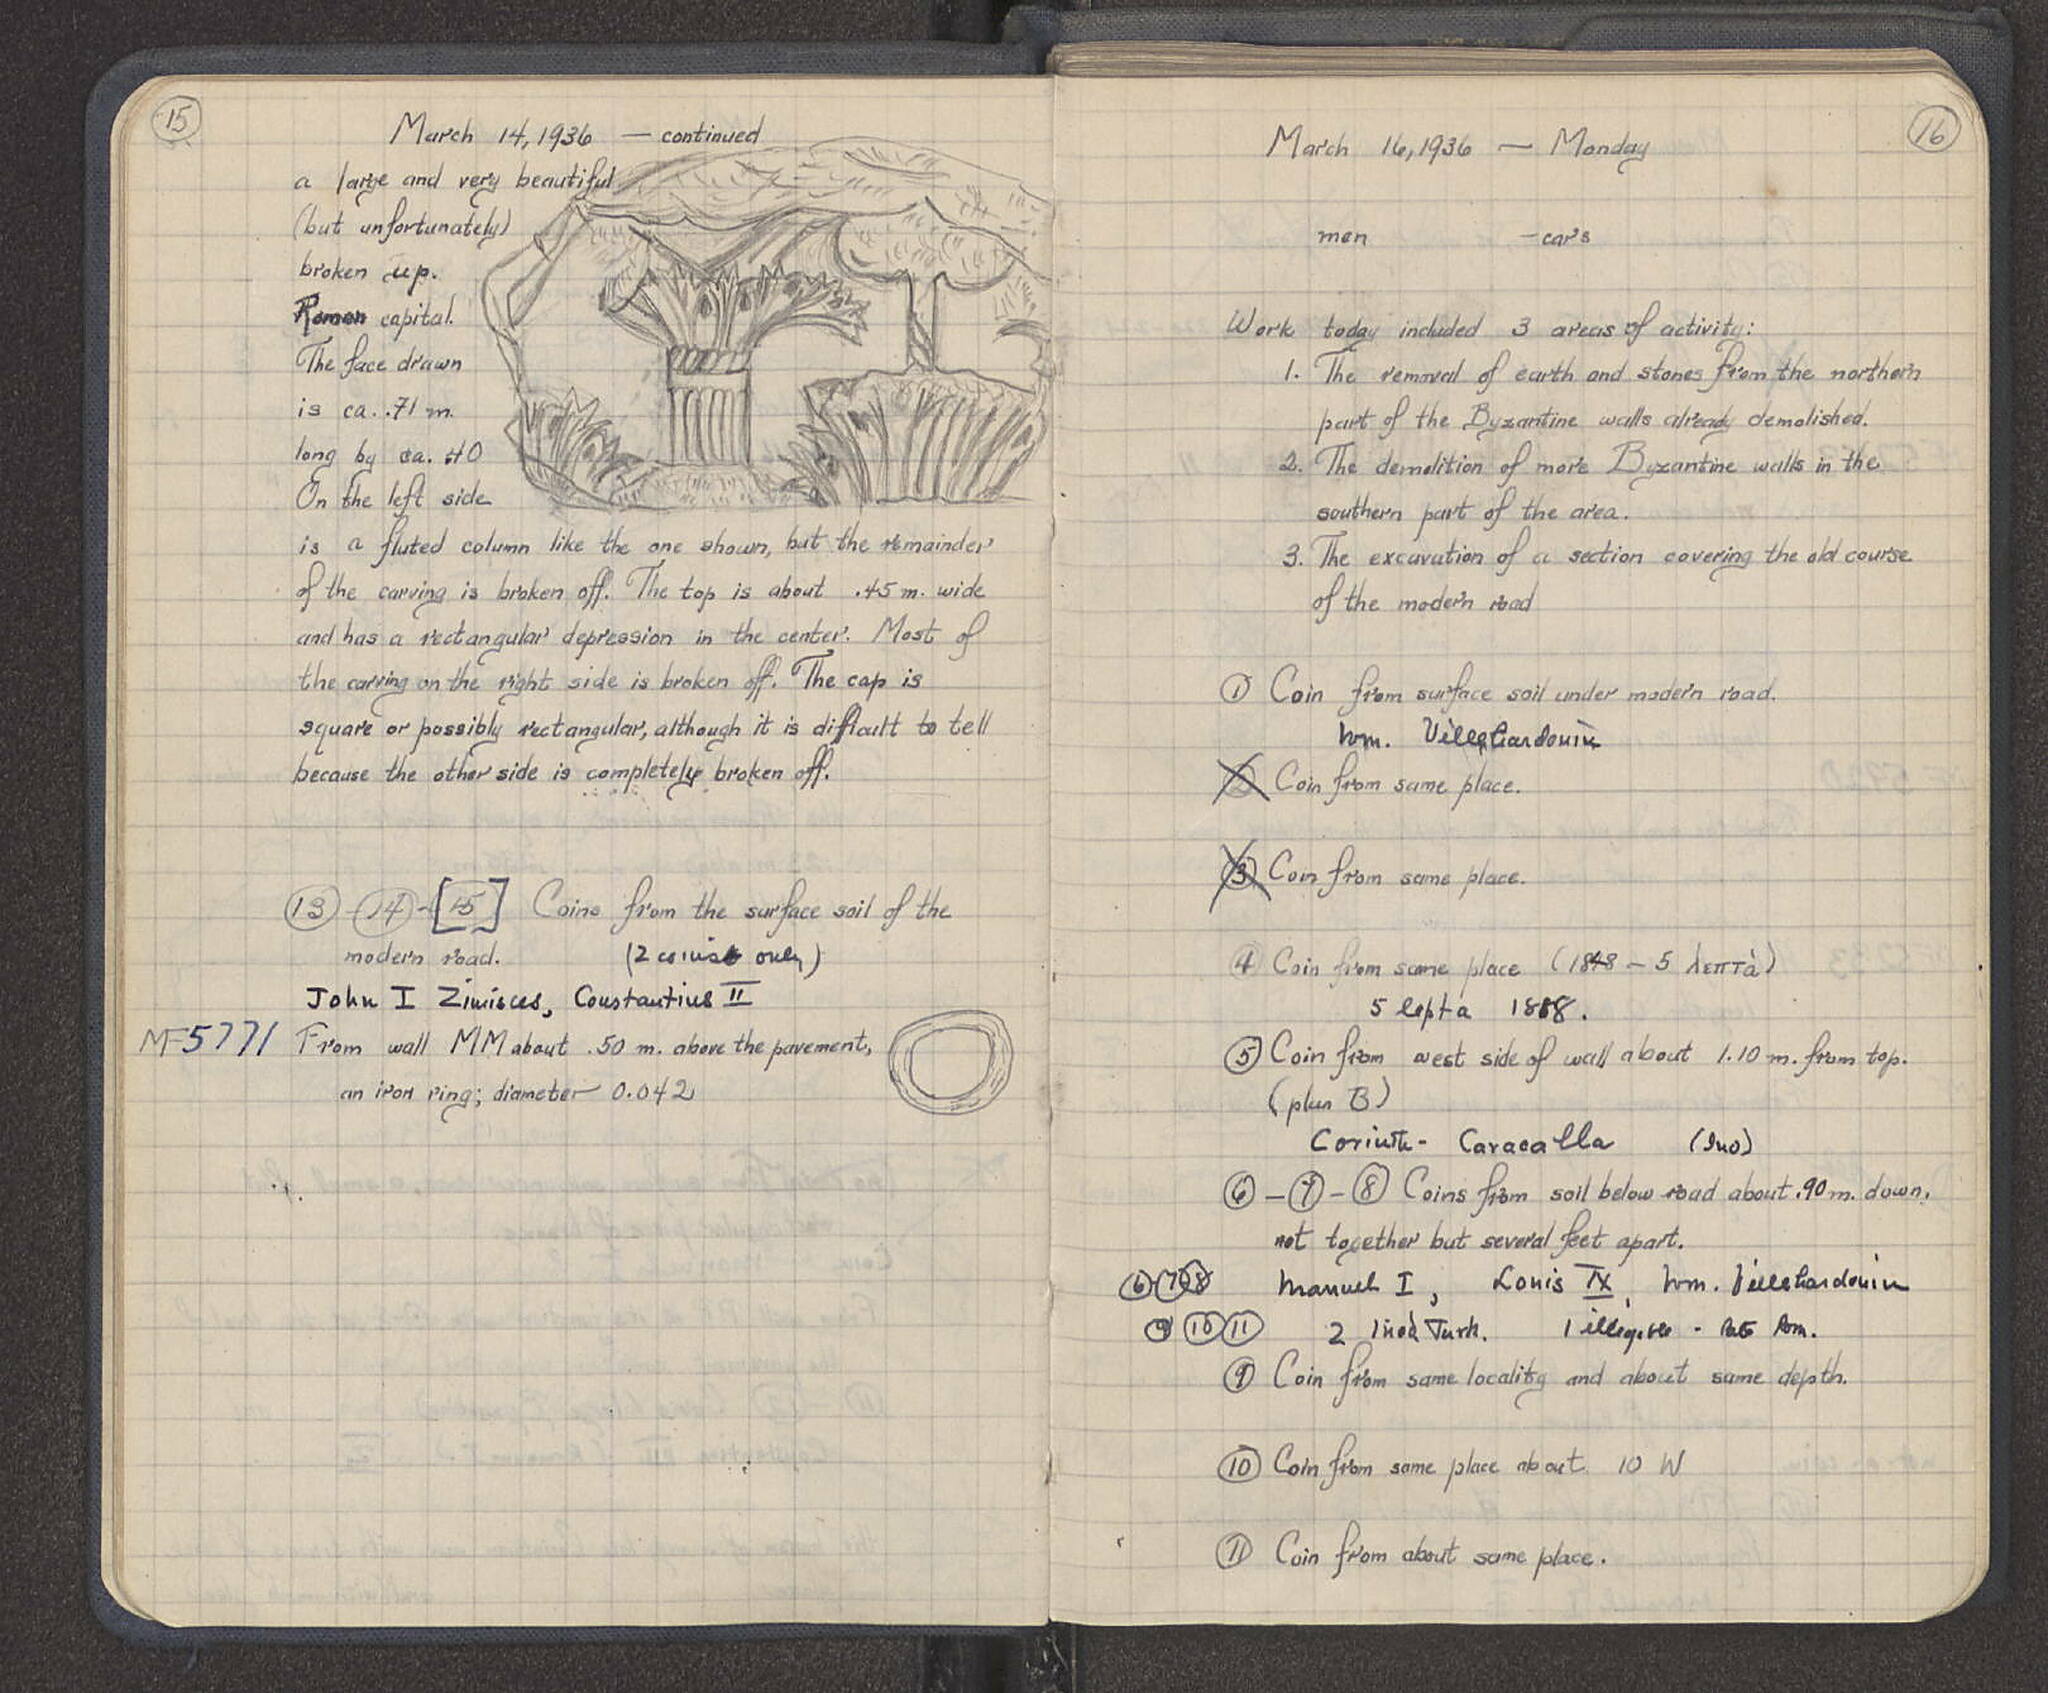 15
March 14, 1936 — continued
a large and very beautiful
(but unfortunately)
broken up.
Roman capital.
The face drawn
is ca. .71 m.
long by ca. 40
On the left side
is a fluted column like the one shown, but the remainder
of the carving is broken off. The top is about .45 m. wide
and has a rectangular depression in the center. Most of
the carving on the right side is broken off. The cap is
square or possibly rectangular, although it is difficult to tell
because the other side is completely broken off.
13 - 14 - [15] Coins from the surface soil of the
modern road. (2 coins only)
John I Zimisces, Constantius II
MF 5771 From wall MM about .50 m. above the pavement,
an iron ring; diameter 0.042
16
March 16, 1936 — Monday
men — cars
Work today included 3 areas of activity:
1. The removal of earth and stones from the northern
part of the Byzantine walls already demolished.
2. The demolition of more Byzantine walls in the
southern part of the area.
3. The excavation of a section covering the old course
of the modern road
1 Coin from surface soil under modern road.
Wm. Villehardouin
2 Coin from same place.
3 Coin from same place.
4 Coin from same place (1848 – 5 λεπτὰ)
5 lepta
5 Coin from west side of wall about 1.10 m. from top.
(plan B)
Corinth - Caracalla (Ino)
6 – 7 – 8 Coins from soil below road about .90 m. down,
not together but several feet apart.
6 7 8 Manuel I, Louis IX, Wm. Villehardouin
9 10 11 2 Turk. 1 illegible - late Rom.
9 Coin from same locality and about same depth.
10 Coin from same place about 10 W
11 Coin from about same place.